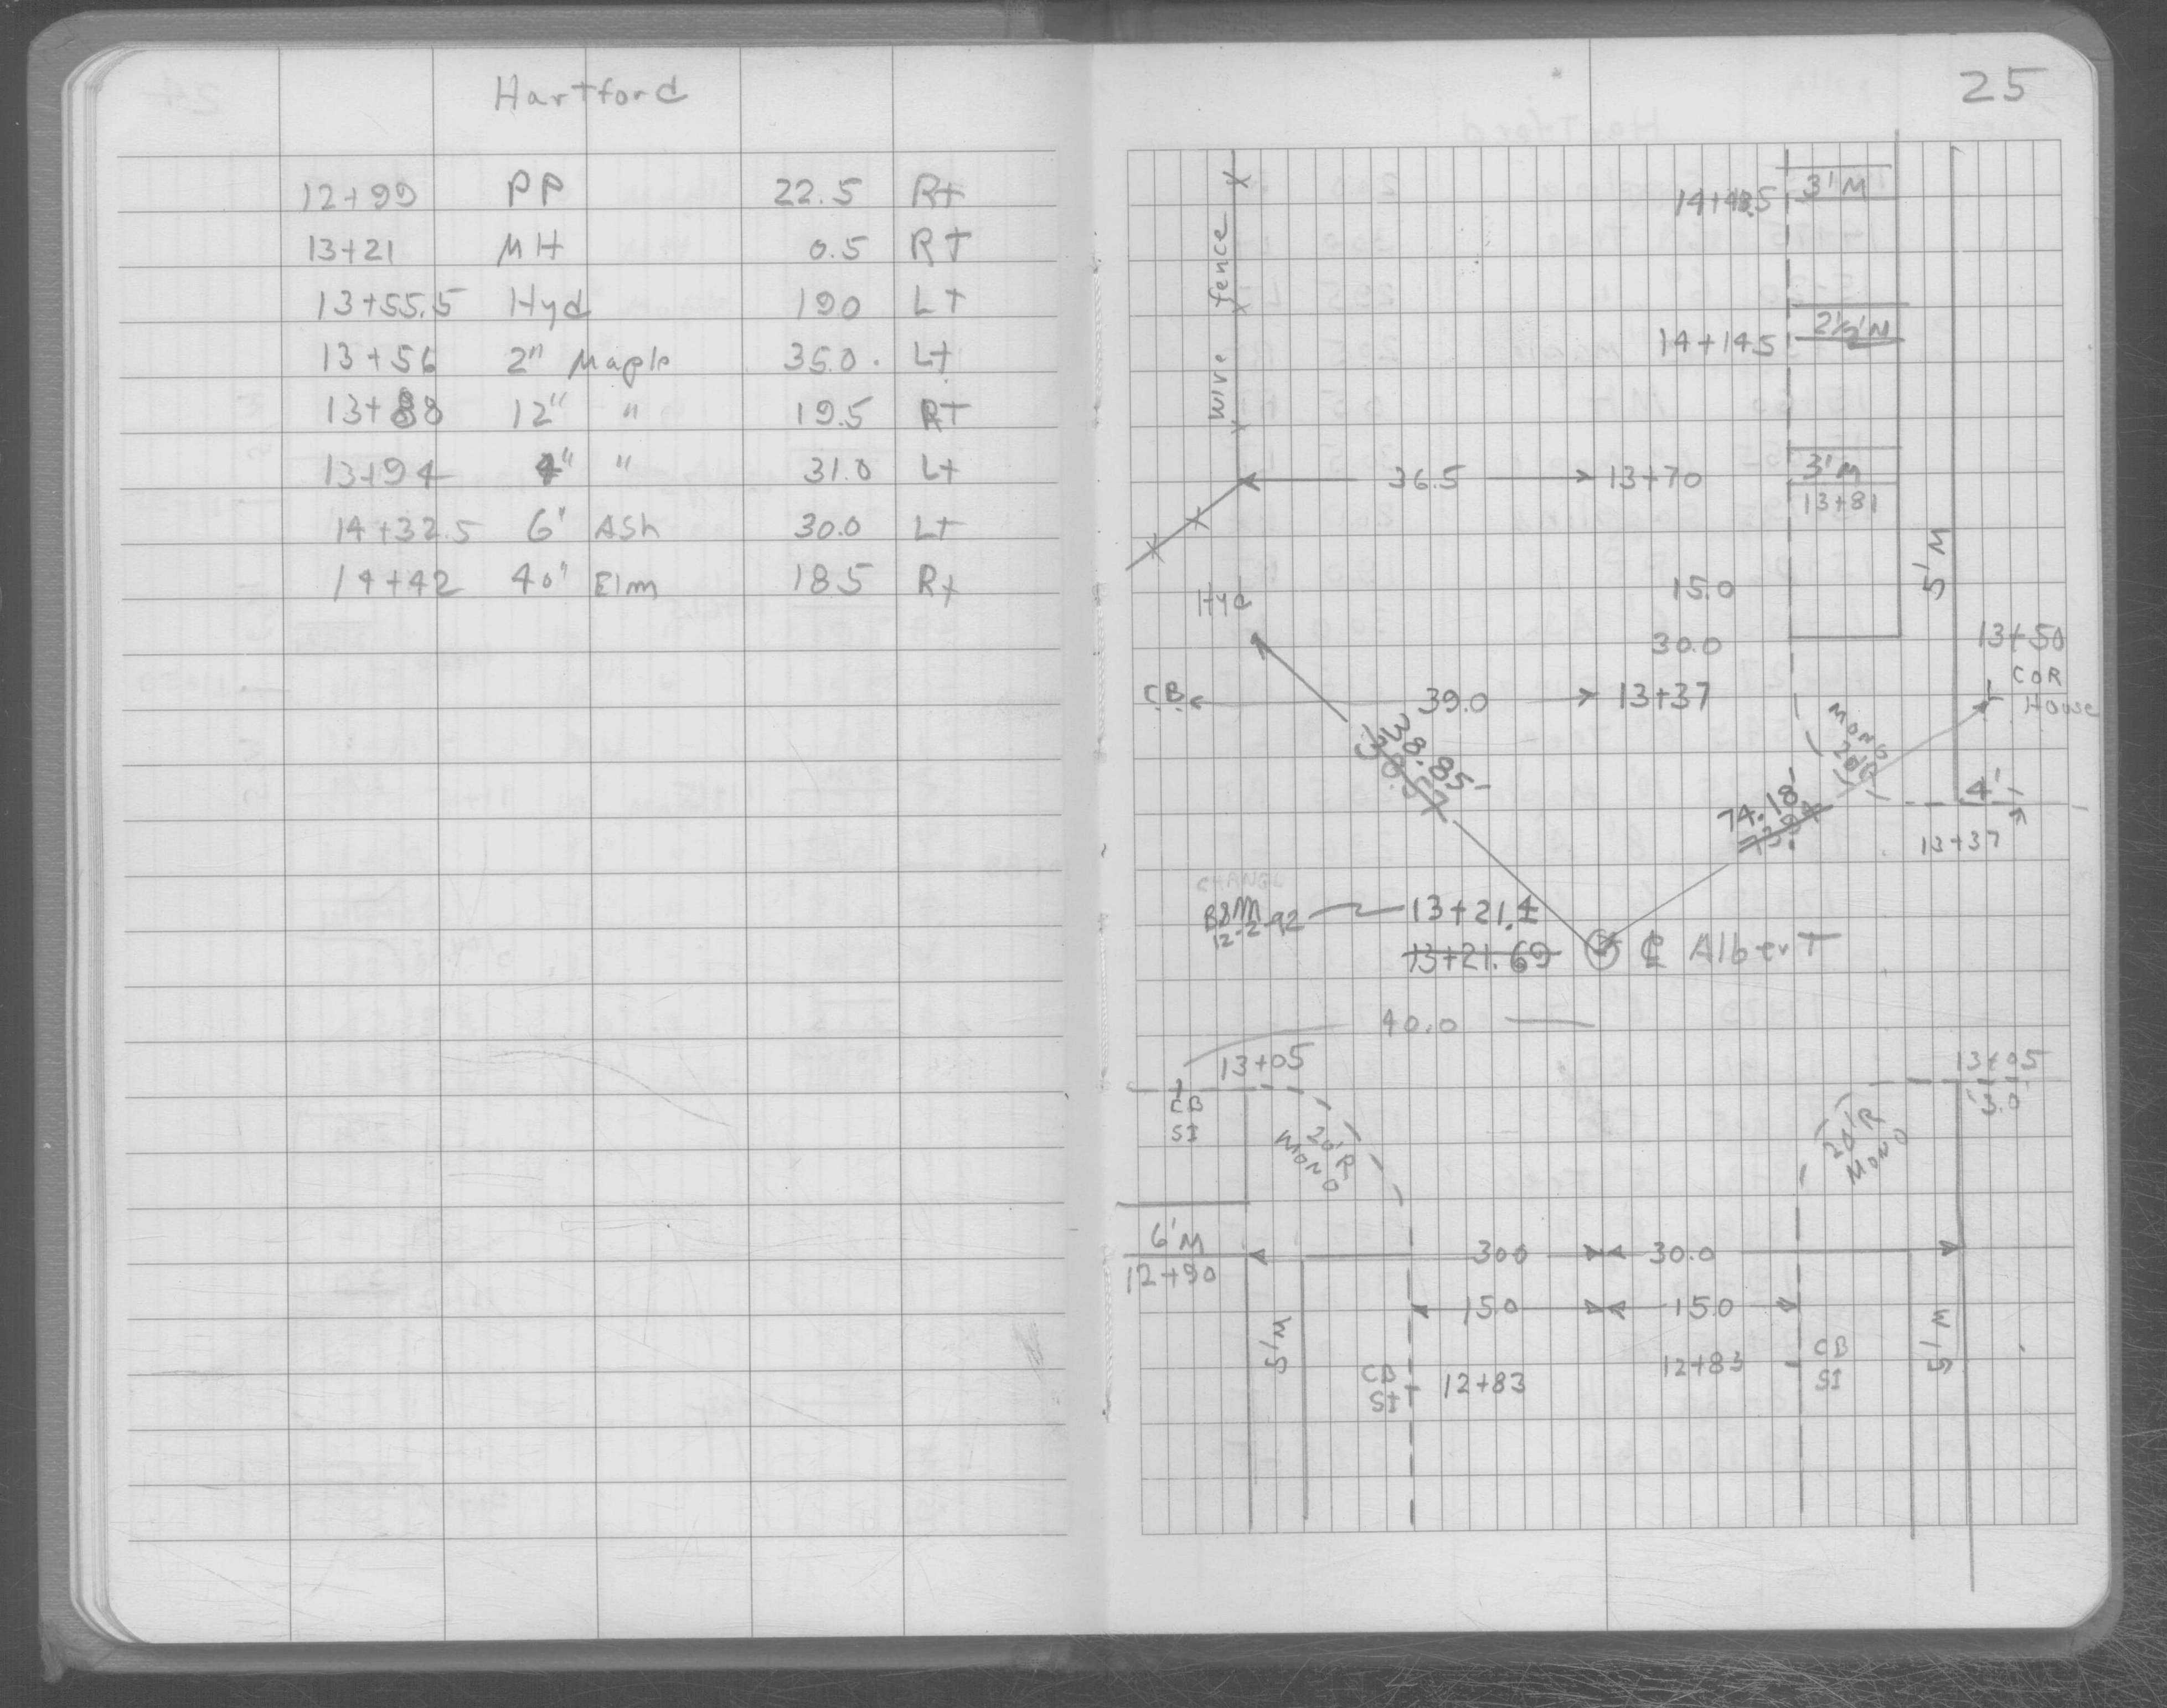 Hartford
12+99 PP 22.5 Rt
13+21 MH 0.5 RT
13+55.5 Hyd 190 Lt
13+56 2" Maple 35.0. Lt
13+88 12" " 19.5 RT
13+94 4" " 31.0 Lt
14+32.5 6" ASh 30.0 Lt
14+42 40" Elm 18.5 Rt
25
wire fence
14+48.5 3'M
14+14.5 2½'M
36.5 13+70
3'M
13+81
5'M
Hyd
15.0
30.0
13+50
COR
House
C.B. 39.0 13+37
MONO
20'R
38.85-
74.18
4'
13+37
CHANGE
13+21.4
12-2-92
13+21.69 ℄ AlberT
40.0
13+05
CB
SI
20'R
MONO
13+05
3.0
20'R
MONO
6'M
12+90
300 30.0
150 150
5'M
CB
SI 12+83
12+83 CB
SI
5'M